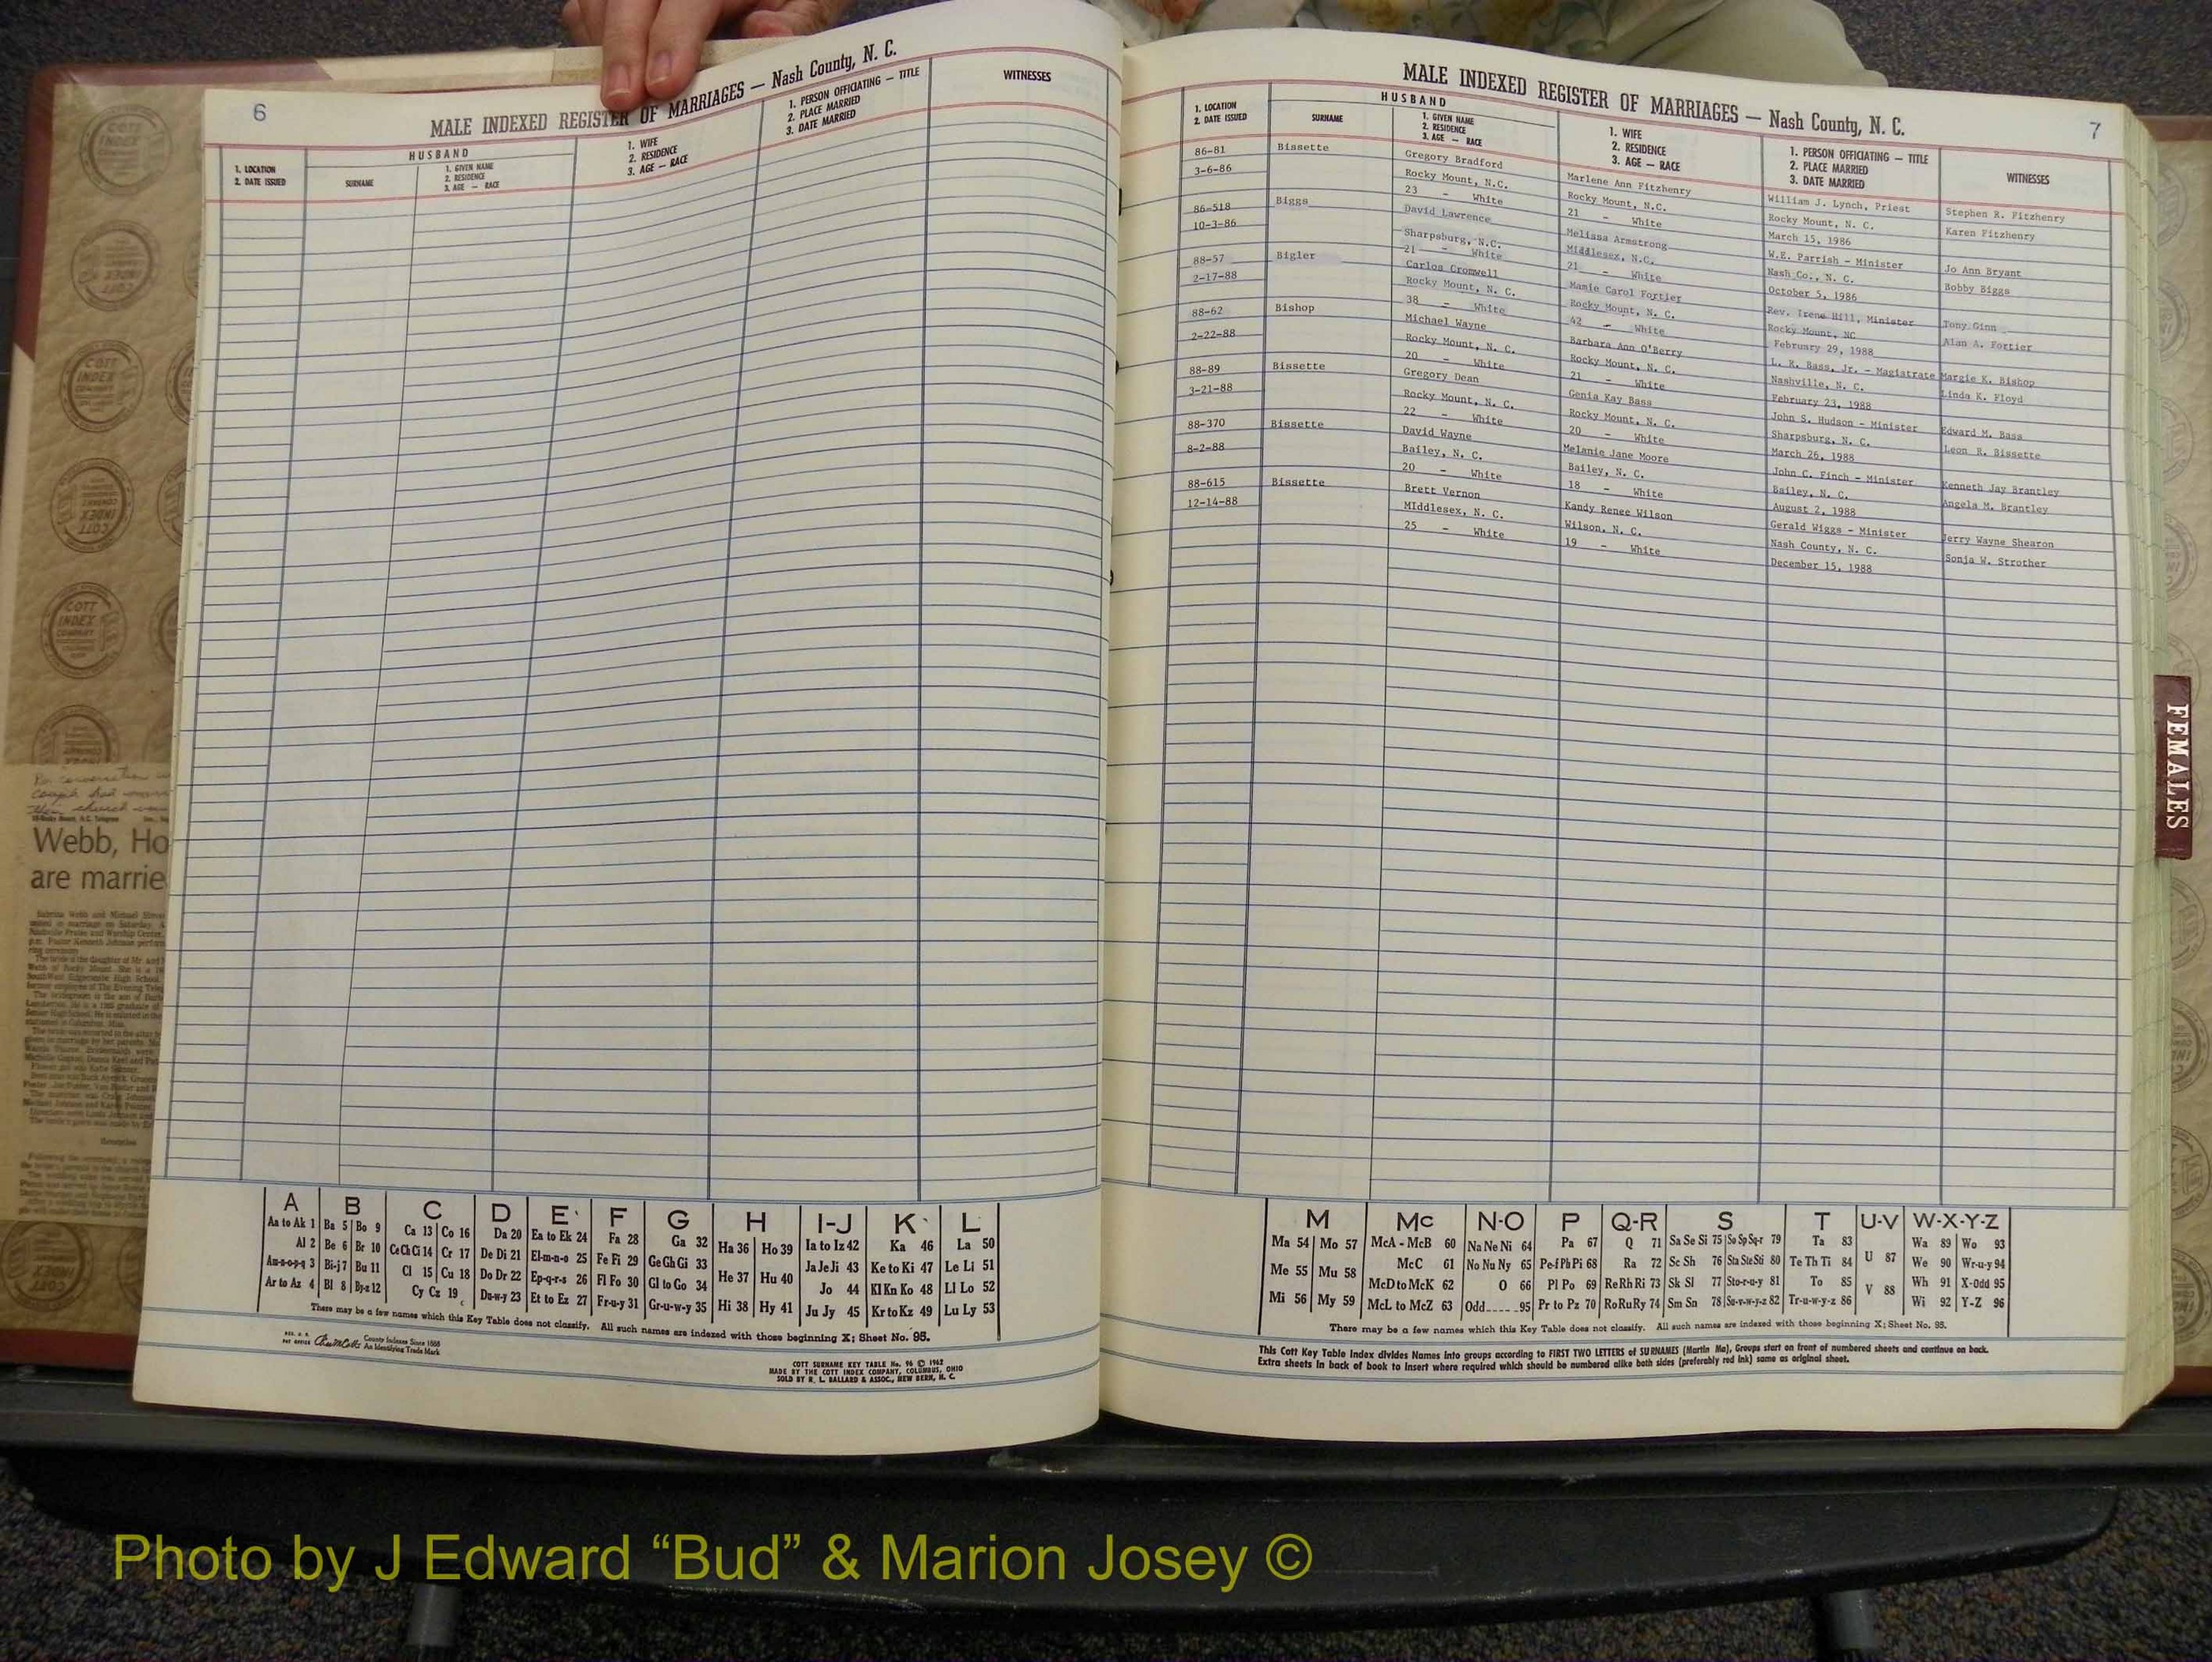 6
MALE INDEXED REGISTER OF MARRIAGES — Nash County, N. C.
1. LOCATION
2. DATE ISSUED
HUSBAND
SURNAME
1. GIVEN NAME
2. RESIDENCE
3. AGE — RACE
1. WIFE
2. RESIDENCE
3. AGE — RACE
1. PERSON OFFICIATING — TITLE
2. PLACE MARRIED
3. DATE MARRIED
WITNESSES
A B C D E F G H I-J K L
Aa to Ak 1 Ba 5 Bo 9 Ca 13 Co 16 Da 20 Ea to Ek 24 Fa 28 Ga 32 Ha 36 Ho 39 Ia to Iz 42 Ka 46 La 50
Al 2 Be 6 Br 10 Ce Ch Ci 14 Cr 17 De Di 21 El-m-n-o 25 Fe Fi 29 Ge Gh Gi 33 He 37 Hu 40 Ja Je Ji 43 Ke to Ki 47 Le Li 51
Am-n-o-p-q 3 Bi-j 7 Bu 11 Cl 15 Cu 18 Do Dr 22 Ep-q-r-s 26 Fl Fo 30 Gl to Go 34 Hi 38 Hy 41 Jo 44 Kl Kn Ko 48 Ll Lo 52
Ar to Az 4 Bl 8 By-z 12 Cy Cz 19 Du-w-y 23 Et to Ez 27 Fr-u-y 31 Gr-u-w-y 35 Ju Jy 45 Kr to Kz 49 Lu Ly 53
There may be a few names which this Key Table does not classify. All such names are indexed with those beginning X; Sheet No. 95.
County Indexes Since 1888
An Identifying Trade Mark
COTT SURNAME KEY TABLE No. 96 © 1962
MADE BY THE COTT INDEX COMPANY, COLUMBUS, OHIO
SOLD BY R. L. BALLARD & ASSOC., NEW BERN, N. C.
Webb, Ho
are marrie
7
MALE INDEXED REGISTER OF MARRIAGES — Nash County, N. C.
1. LOCATION
2. DATE ISSUED
HUSBAND
SURNAME
1. GIVEN NAME
2. RESIDENCE
3. AGE — RACE
1. WIFE
2. RESIDENCE
3. AGE — RACE
1. PERSON OFFICIATING — TITLE
2. PLACE MARRIED
3. DATE MARRIED
WITNESSES
86-81 Bissette Gregory Bradford Marlene Ann Fitzhenry William J. Lynch, Priest Stephen R. Fitzhenry
3-6-86 Rocky Mount, N.C. Rocky Mount, N.C. Rocky Mount, N. C. Karen Fitzhenry
23 - White 21 - White March 15, 1986
86-518 Biggs David Lawrence Melissa Armstrong W.E. Parrish - Minister Jo Ann Bryant
10-3-86 Sharpsburg, N.C. Middlesex, N.C. Nash Co., N. C. Bobby Biggs
21 - White 21 - White October 5, 1986
88-57 Bigler Carlos Cromwell Mamie Carol Fortier Rev. Irene Hill, Minister Tony Ginn
2-17-88 Rocky Mount, N. C. Rocky Mount, N. C. Rocky Mount, NC Alan A. Fortier
38 - White 42 - White February 29, 1988
88-62 Bishop Michael Wayne Barbara Ann O'Berry L. R. Bass, Jr. - Magistrate Margie K. Bishop
2-22-88 Rocky Mount, N. C. Rocky Mount, N. C. Nashville, N. C. Linda K. Floyd
20 - White 21 - White February 23, 1988
88-89 Bissette Gregory Dean Genia Kay Bass John S. Hudson - Minister Edward M. Bass
3-21-88 Rocky Mount, N. C. Rocky Mount, N. C. Sharpsburg, N. C. Leon R. Bissette
22 - White 20 - White March 26, 1988
88-370 Bissette David Wayne Melanie Jane Moore John C. Finch - Minister Kenneth Jay Brantley
8-2-88 Bailey, N. C. Bailey, N. C. Bailey, N. C. Angela M. Brantley
20 - White 18 - White August 2, 1988
88-615 Bissette Brett Vernon Kandy Renee Wilson Gerald Wiggs - Minister Jerry Wayne Shearon
12-14-88 MIddlesex, N. C. Wilson, N. C. Nash County, N. C. Sonja W. Strother
25 - White 19 - White December 15, 1988
FEMALES
M Mc N-O P Q-R S T U-V W-X-Y-Z
Ma 54 Mo 57 McA - McB 60 Na Ne Ni 64 Pa 67 Q 71 Sa Se Si 75 So Sp Sq-r 79 Ta 83 U 87 Wa 89 Wo 93
Me 55 Mu 58 McC 61 No Nu Ny 65 Pe-f Ph Pi 68 Ra 72 Sc Sh 76 Sta Ste Sti 80 Te Th Ti 84 V 88 We 90 Wr-u-y 94
Mi 56 My 59 McD to McK 62 O 66 Pl Po 69 Re Rh Ri 73 Sk Sl 77 Sto-r-u-y 81 To 85 Wh 91 X-Odd 95
McL to McZ 63 Odd 95 Pr to Pz 70 Ro Ru Ry 74 Sm Sn 78 Su-v-w-y-z 82 Tr-u-w-y-z 86 Wi 92 Y-Z 96
There may be a few names which this Key Table does not classify. All such names are indexed with those beginning X; Sheet No. 95.
This Cott Key Table Index divides Names into groups according to FIRST TWO LETTERS of SURNAMES (Martin Ma), Groups start on front of numbered sheets and continue on back.
Extra sheets in back of book to insert where required which should be numbered alike both sides (preferably red ink) same as original sheet.
Photo by J Edward “Bud” & Marion Josey ©